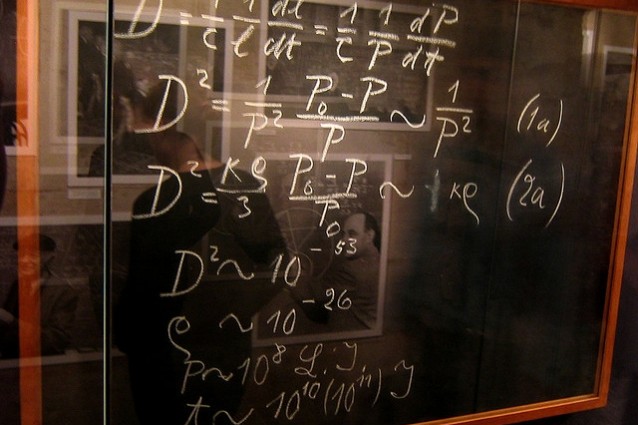 D = 1/c 1/l dl/dt = 1/c 1/P dP/dt
D² = 1/P² P₀-P/P ~ 1/P² (1a)
D² = κϱ/3 P₀-P/P₀ ~ κϱ (2a)
D² ~ 10⁻⁵³
ϱ ~ 10⁻²⁶
P ~ 10⁸ L. J
t ~ 10¹⁰(10¹¹) J